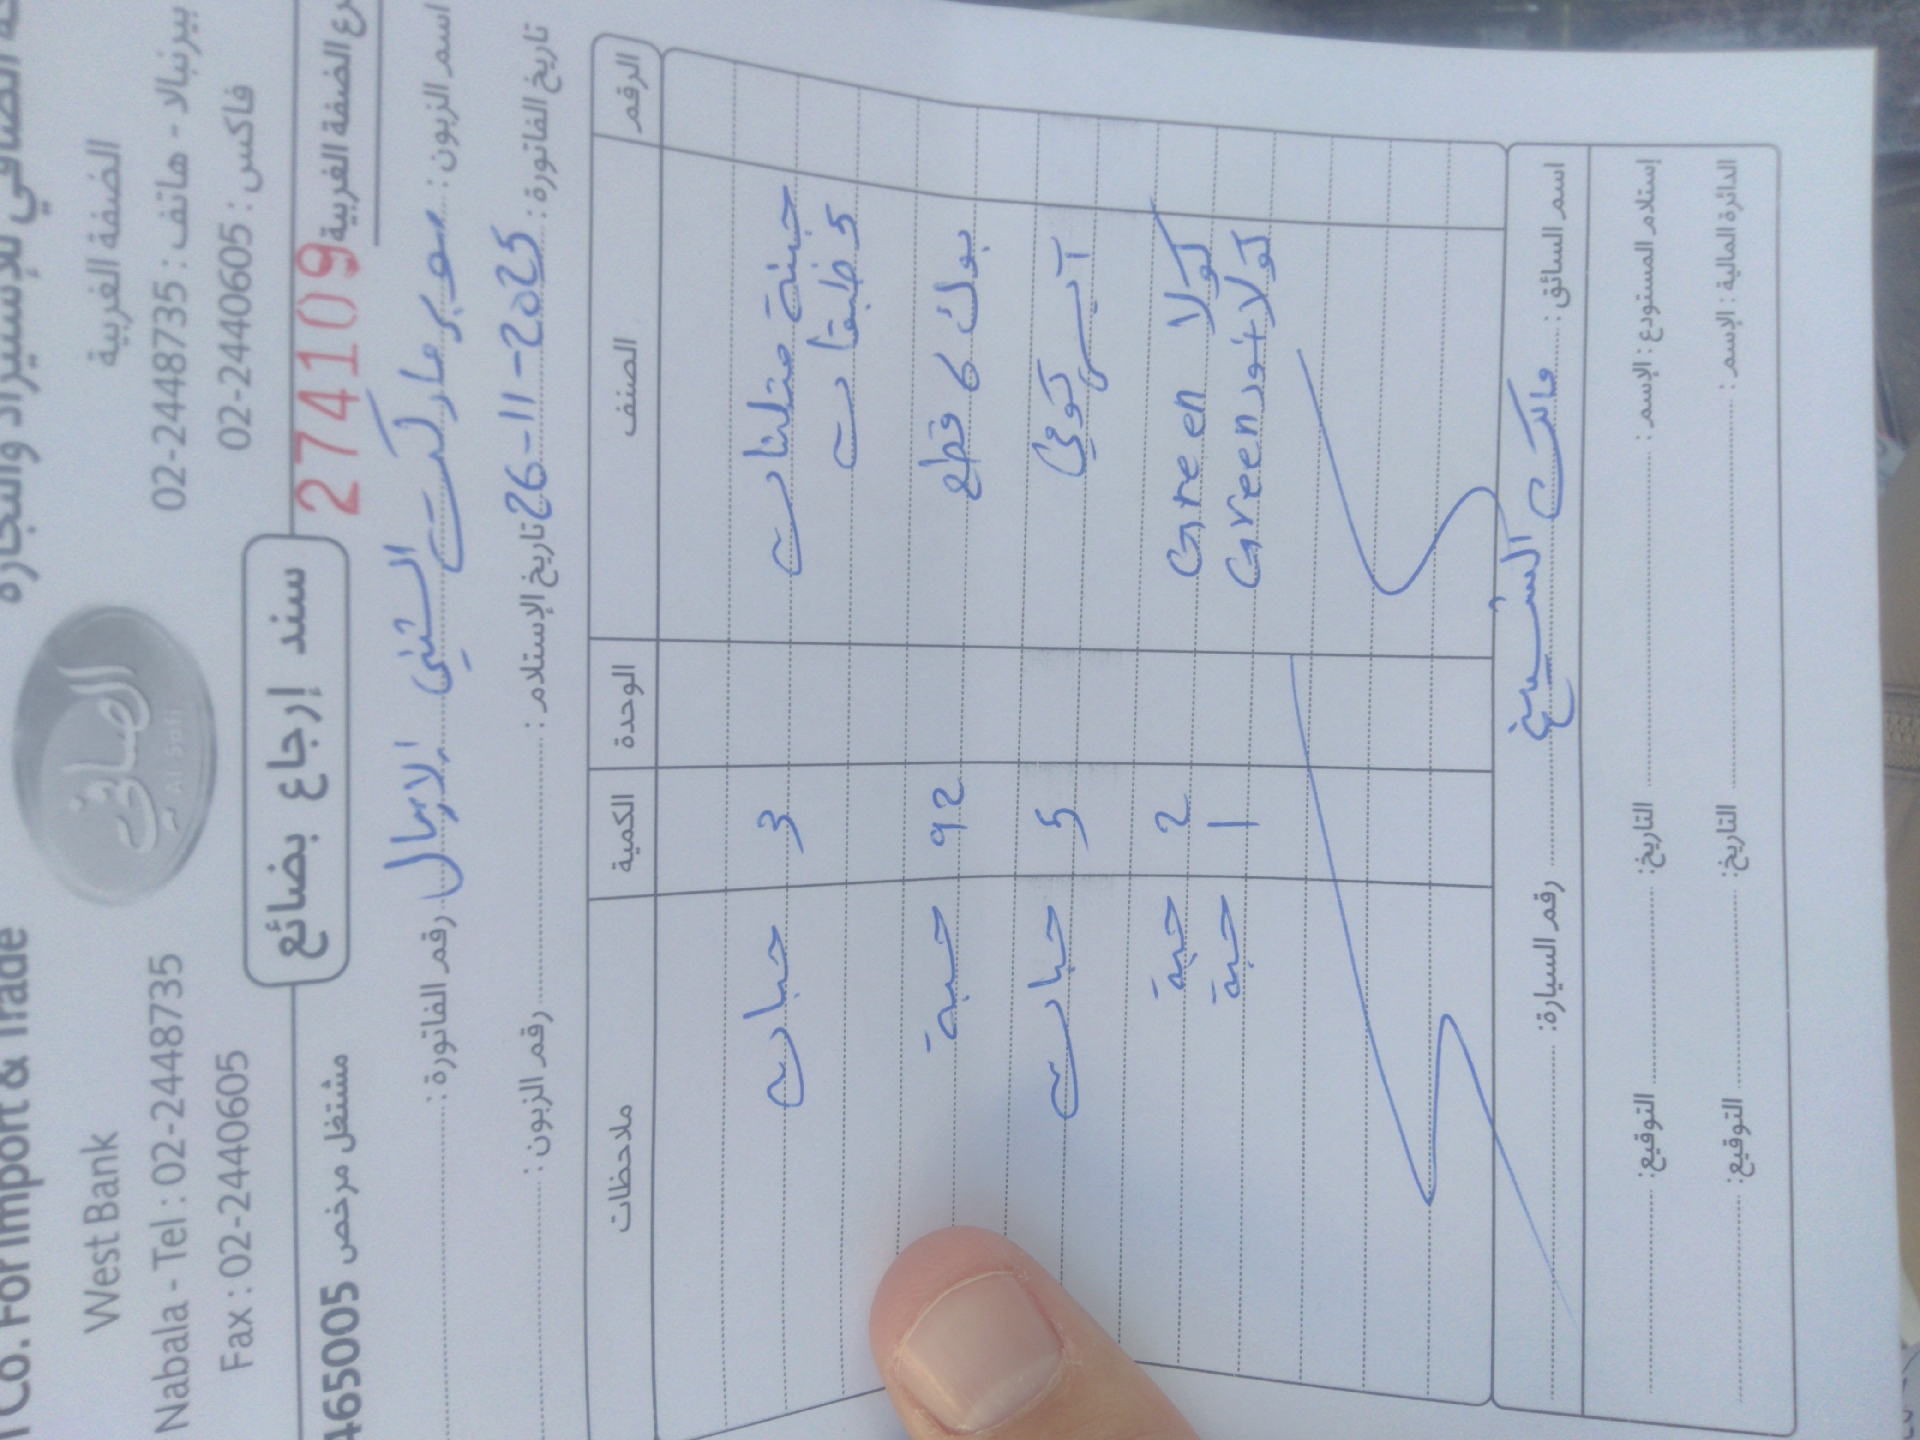 ة الصافي للإستيراد والتجارة
الصافي
Al Safi
i Co. For Import & Trade
الضفة الغربية
West Bank
بيرنبالا - هاتف : 02-2448735
Nabala - Tel : 02-2448735
فاكس : 02-2440605
Fax : 02-2440605
رع الضفة الغربية
274109
سند إرجاع بضائع
مشتغل مرخص 465005
اسم الزبون : سوبر ماركت الشني الارسال
رقم الفاتورة :
تاريخ الفاتورة : 26-11-2025
تاريخ الإستلام :
رقم الزبون :
الرقم الصنف الوحدة الكمية ملاحظات
جبنة مثلثات 3 حبات
5 طبقات
بوك 6 قطع 92 حبة
آيس كوفي 5 حبات
كولا Green 2 حبة
كولا Green 1 حبة
اسم السائق : مالك الشيخ
رقم السيارة:
إستلام المستودع : الإسم : التاريخ: التوقيع:
الدائرة المالية : الإسم : التاريخ: التوقيع: